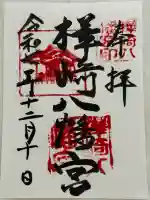 奉拝
樺崎八幡宮
令和 年十二月十日